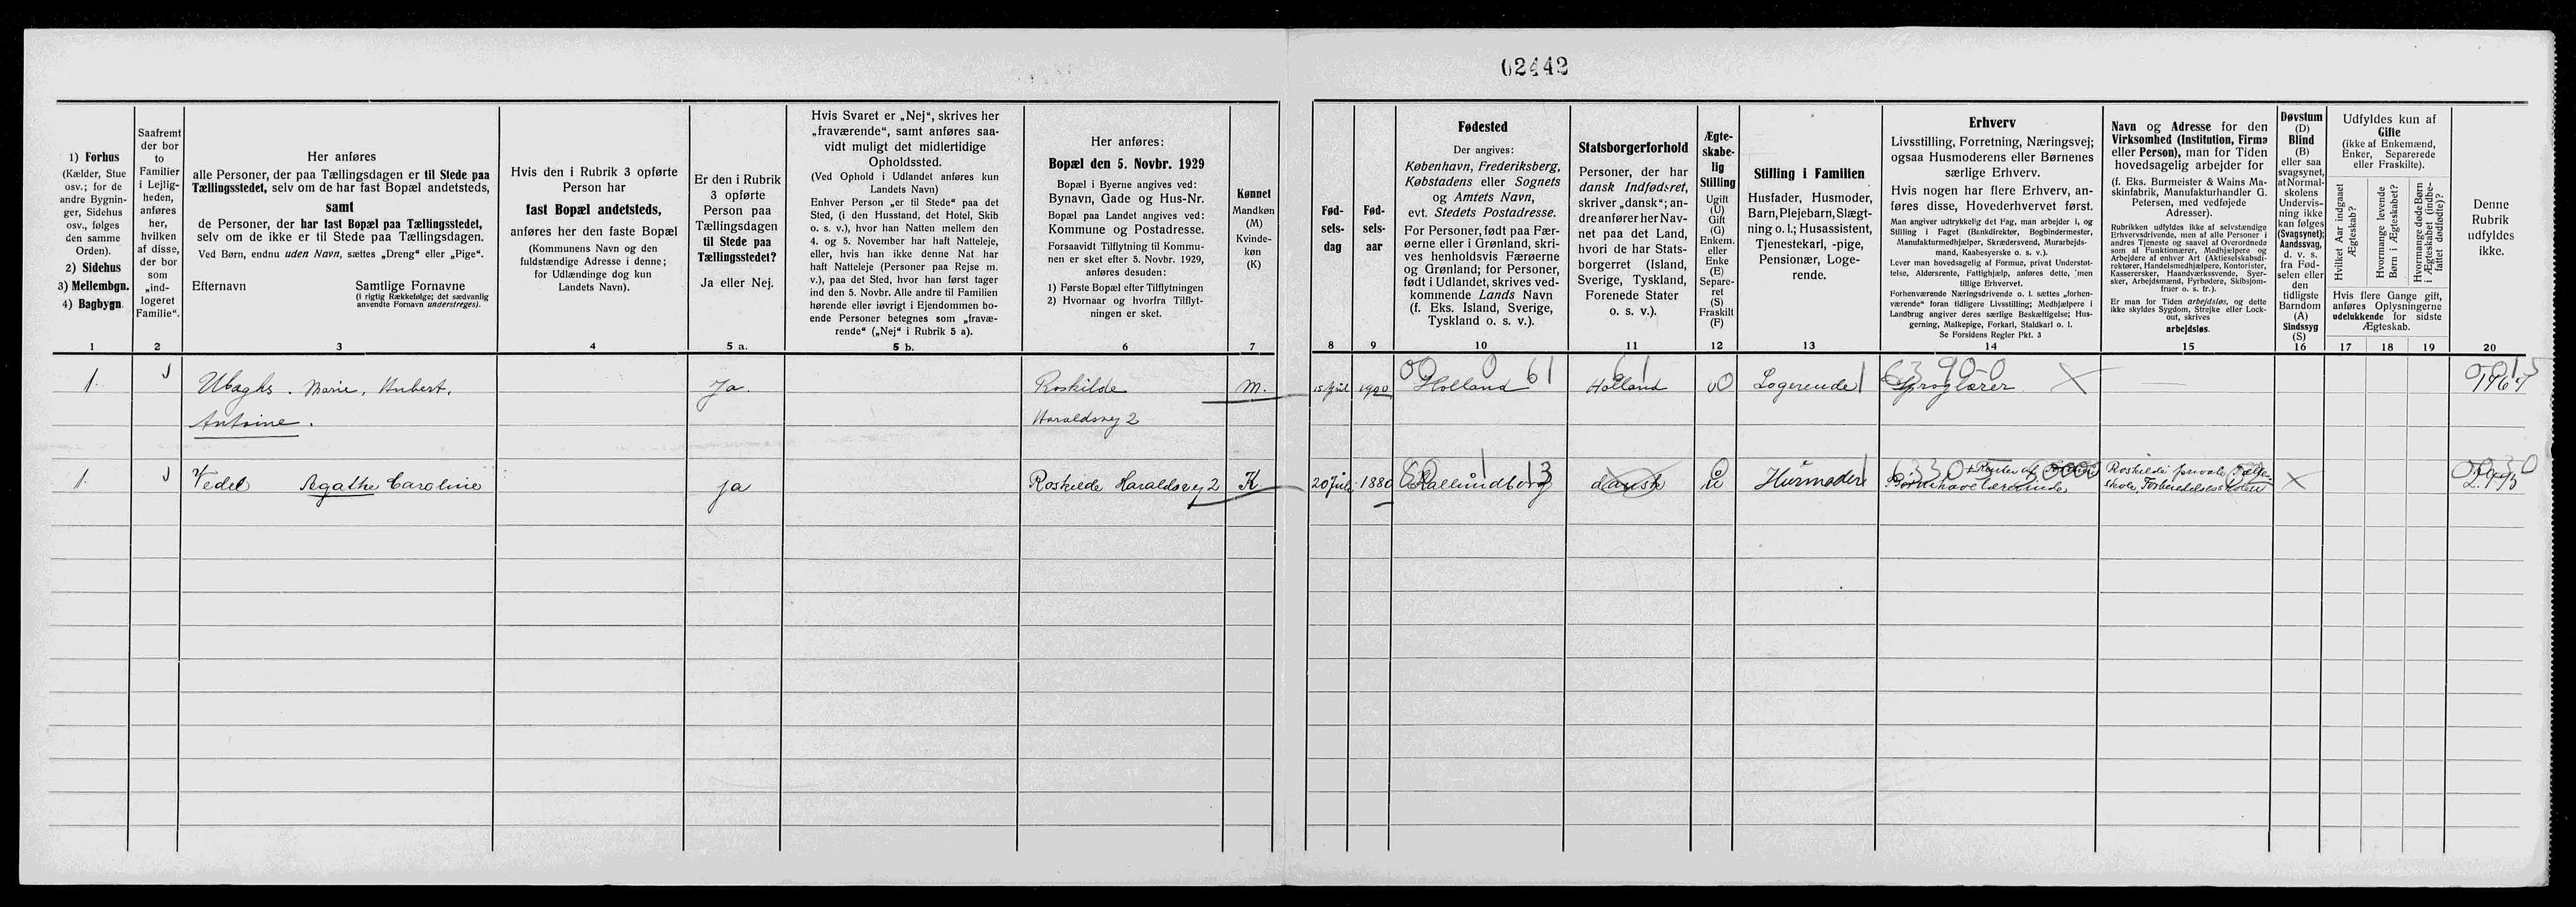 02442
1) Forhus
(Kælder, Stue
osv.; for de
andre Bygnin-
ger, Sidehus
osv., følges
den samme
Orden).
2) Sidehus
3) Mellembgn.
4) Bagbygn.
Saafremt
der bor
to
Familier
i Lejlig-
heden,
anføres
her,
hvilken
af disse,
der bor
som
„ind-
logeret
Familie“.
Her anføres
alle Personer, der paa Tællingsdagen er til Stede paa
Tællingsstedet, selv om de har fast Bopæl andetsteds,
samt
de Personer, der har fast Bopæl paa Tællingsstedet,
selv om de ikke er til Stede paa Tællingsdagen.
Ved Børn, endnu uden Navn, sættes „Dreng“ eller „Pige“.
Efternavn Samtlige Fornavne
(i rigtig Rækkefølge; det sædvanlig
anvendte Fornavn understreges).
Hvis den i Rubrik 3 opførte
Person har
fast Bopæl andetsteds,
anføres her den faste Bopæl
(Kommunens Navn og den
fuldstændige Adresse i denne;
for Udlændinge dog kun
Landets Navn).
Er den i Rubrik
3 opførte
Person paa
Tællingsdagen
til Stede paa
Tællingsstedet?
Ja eller Nej.
Hvis Svaret er „Nej“, skrives her
„fraværende“, samt anføres saa-
vidt muligt det midlertidige
Opholdssted.
(Ved Ophold i Udlandet anføres kun
Landets Navn)
Enhver Person „er til Stede“ paa det
Sted, (i den Husstand, det Hotel, Skib
o. s. v.), hvor han Natten mellem den
4. og 5. November har haft Natteleje,
eller, hvis han ikke denne Nat har
haft Natteleje (Personer paa Rejse m.
v.), paa det Sted, hvor han først tager
ind den 5. Novbr. Alle andre til Familien
hørende eller iøvrigt i Ejendommen bo-
ende Personer betegnes som „fravæ-
rende“ („Nej“ i Rubrik 5 a).
Her anføres:
Bopæl den 5. Novbr. 1929
Bopæl i Byerne angives ved:
Bynavn, Gade og Hus-Nr.
Bopæl paa Landet angives ved:
Kommune og Postadresse.
Forsaavidt Tilflytning til Kommu-
nen er sket efter 5. Novbr. 1929,
anføres desuden:
1) Første Bopæl efter Tilflytningen
2) Hvornaar og hvorfra Tilflyt-
ningen er sket.
Kønnet
Mandkøn
(M)
Kvinde-
køn
(K)
Fød-
sels-
dag
Fød-
sels-
aar
Fødested
Der angives:
København, Frederiksberg,
Købstadens eller Sognets
og Amtets Navn,
evt. Stedets Postadresse.
For Personer, født paa Fær-
øerne eller i Grønland, skri-
ves henholdsvis Færøerne
og Grønland; for Personer,
født i Udlandet, skrives ved-
kommende Lands Navn
(f. Eks. Island, Sverige,
Tyskland o. s. v.).
Statsborgerforhold
Personer, der har
dansk Indfødsret,
skriver „dansk“; an-
dre anfører her Nav-
net paa det Land,
hvori de har Stats-
borgerret (Island,
Sverige, Tyskland,
Forenede Stater
o. s. v.).
Ægte-
skabe-
lig
Stilling
Ugift
(U)
Gift
(G)
Enkem.
eller
Enke
(E)
Separe-
ret
(S)
Fraskilt
(F)
Stilling i Familien
Husfader, Husmoder,
Barn, Plejebarn, Slægt-
ning o. l.; Husassistent,
Tjenestekarl, -pige,
Pensionær, Loge-
rende.
Erhverv
Livsstilling, Forretning, Næringsvej;
ogsaa Husmoderens eller Børnenes
særlige Erhverv.
Hvis nogen har flere Erhverv, an-
føres disse, Hovederhvervet først.
Man angiver udtrykkelig det Fag, man arbejder i, og
Stilling i Faget (Bankdirektør, Bogbindermester,
Manufakturmedhjælper, Skrædersvend, Murarbejds-
mand, Kaabesyerske o. s. v.).
Lever man hovedsagelig af Formue, privat Understøt-
telse, Aldersrente, Fattighjælp, anføres dette, men
tillige Erhvervet.
Forhenværende Næringsdrivende o. l. sættes „forhen-
værende“ foran tidligere Livsstilling; Medhjælpere i
Landbrug angiver deres særlige Beskæftigelse; Hus-
gerning, Malkepige, Forkarl, Staldkarl o. l.
Se Forsidens Regler Pkt. 3
Navn og Adresse for den
Virksomhed (Institution, Firma
eller Person), man for Tiden
hovedsagelig arbejder for
(f. Eks. Burmeister & Wains Ma-
skinfabrik, Manufakturhandler G.
Petersen, med vedføjede
Adresser).
Rubrikken udfyldes ikke af selvstændige
Erhvervsdrivende, men af alle Personer i
andres Tjeneste og saavel af Overordnede
som af Funktionærer, Medhjælpere og
Arbejdere af enhver Art (Aktieselskabsdi-
rektører, Handelsmedhjælpere, Kontorister,
Kasserersker, Haandværkssvende, Syer-
sker, Arbejdsmænd, Fyrbødere, Skibsjom-
fruer o. s. fr.).
Er man for Tiden arbejdsløs, og dette
ikke skyldes Sygdom, Strejke eller Lock-
out, skrives
arbejdsløs.
Døvstum
(D)
Blind
(B)
eller saa
svagsynet,
at Normal-
skolens
Undervis-
ning ikke
kan følges
(Svagsynet);
Aandssvag,
d. v. s.
fra Fød-
selen eller
den
tidligste
Barndom
(A)
Sindssyg
(S)
Udfyldes kun af
Gifte
(ikke af Enkemænd,
Enker, Separerede
eller Fraskilte).
Hvilket Aar indgaaet
Ægteskab?
Hvormange levende
Børn i Ægteskabet?
Hvormange døde Børn
i Ægteskabet (indbe-
fattet dødfødte)?
Hvis flere Gange gift,
anføres Oplysningerne
udelukkende for sidste
Ægteskab.
Denne
Rubrik
udfyldes
ikke.
1 2 3 4 5 a. 5 b. 6 7 8 9 10 11 12 13 14 15 16 17 18 19 20
1. Ubaghs. Marie, Hubert, Ja. Roskilde M. 15 Juli 1900 Holland Holland U Logerende Sproglærer
Antoine. Haraldsvej 2
1. Vedel Agathe Caroline Ja Roskilde Haraldsvej 2 K 20 Juli 1880 Kallundborg dansk Husmoder Børnehavelærerinde